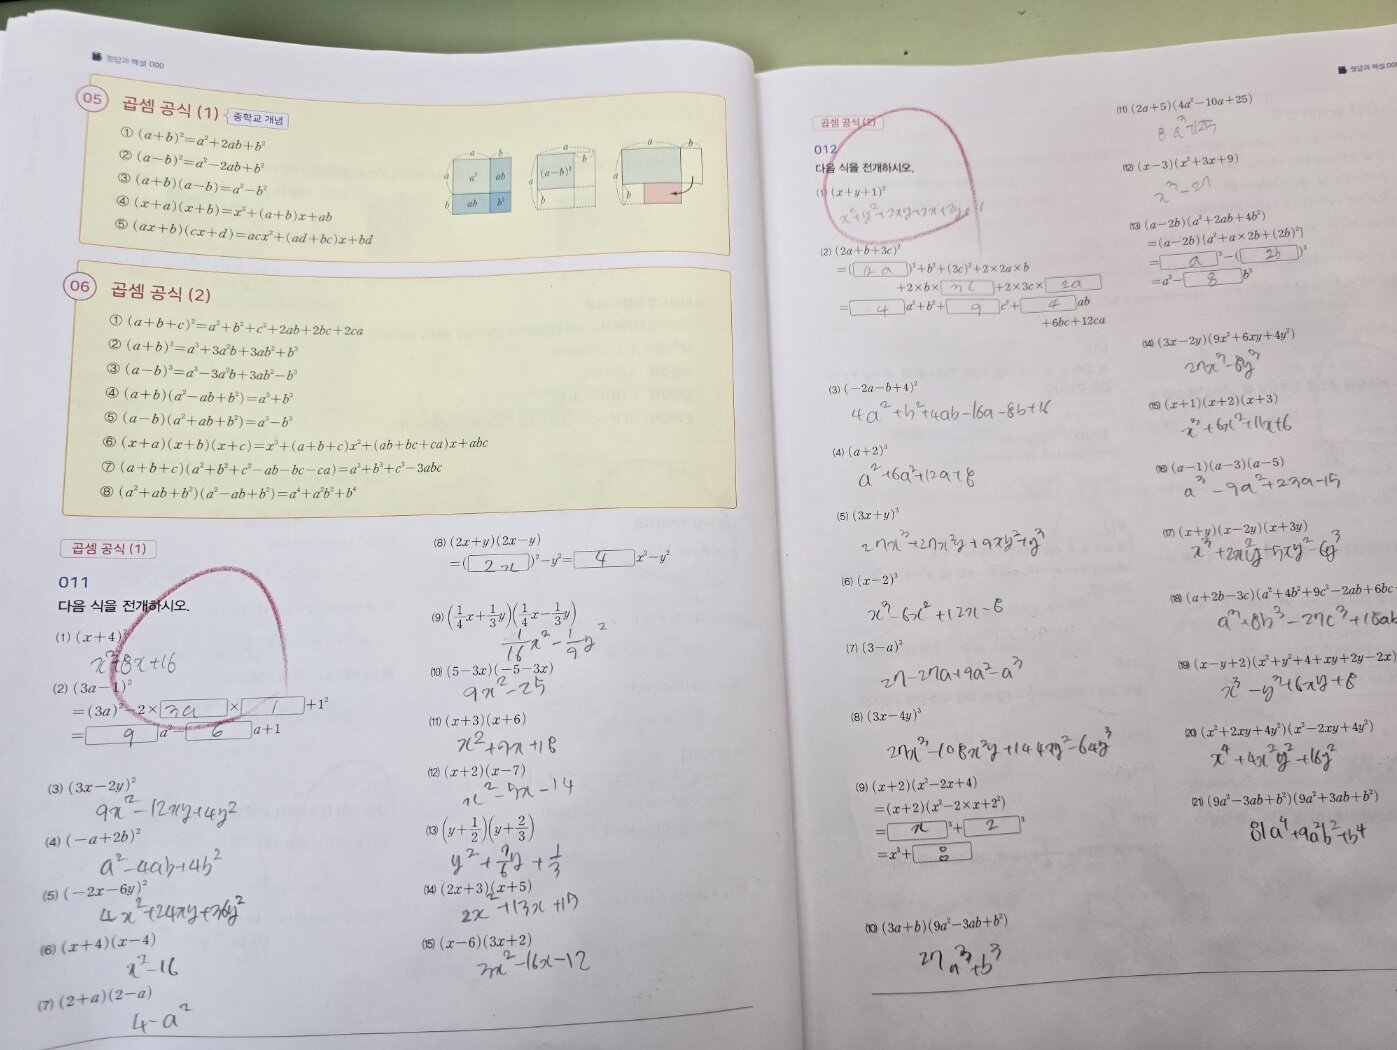 정답과 해설 000
05 곱셈 공식 (1) 중학교 개념
① (a+b)²=a²+2ab+b²
② (a−b)²=a²−2ab+b²
③ (a+b)(a−b)=a²−b²
④ (x+a)(x+b)=x²+(a+b)x+ab
⑤ (ax+b)(cx+d)=acx²+(ad+bc)x+bd
a b
a a² ab
b ab b²
a
a (a−b)² b
b
a b
a
b
06 곱셈 공식 (2)
① (a+b+c)²=a²+b²+c²+2ab+2bc+2ca
② (a+b)³=a³+3a²b+3ab²+b³
③ (a−b)³=a³−3a²b+3ab²−b³
④ (a+b)(a²−ab+b²)=a³+b³
⑤ (a−b)(a²+ab+b²)=a³−b³
⑥ (x+a)(x+b)(x+c)=x³+(a+b+c)x²+(ab+bc+ca)x+abc
⑦ (a+b+c)(a²+b²+c²−ab−bc−ca)=a³+b³+c³−3abc
⑧ (a²+ab+b²)(a²−ab+b²)=a⁴+a²b²+b⁴
곱셈 공식 (1)
011
다음 식을 전개하시오.
(1) (x+4)²
x²+8x+16
(2) (3a−1)²
=(3a)²−2×3a×1+1²
=9a²−6a+1
(3) (3x−2y)²
9x²−12xy+4y²
(4) (−a+2b)²
a²−4ab+4b²
(5) (−2x−6y)²
4x²+24xy+36y²
(6) (x+4)(x−4)
x²−16
(7) (2+a)(2−a)
4−a²
(8) (2x+y)(2x−y)
=(2x)²−y²=4x²−y²
(9) (1/4x+1/3y)(1/4x−1/3y)
1/16x²−1/9y²
(10) (5−3x)(−5−3x)
9x²−25
(11) (x+3)(x+6)
x²+9x+18
(12) (x+2)(x−7)
x²−5x−14
(13) (y+1/2)(y+2/3)
y²+7/6y+1/3
(14) (2x+3)(x+5)
2x²+13x+15
(15) (x−6)(3x+2)
3x²−16x−12
곱셈 공식 (2)
012
다음 식을 전개하시오.
(1) (x+y+1)²
x²+y²+2xy+2x+2y+1
(2) (2a+b+3c)²
=(2a)²+b²+(3c)²+2×2a×b
+2×b×3c+2×3c×2a
=4a²+b²+9c²+4ab
+6bc+12ca
(3) (−2a−b+4)²
4a²+b²+4ab−16a−8b+16
(4) (a+2)³
a²+6a²+12a+8
(5) (3x+y)³
27x³+27x²y+9xy²+y³
(6) (x−2)³
x³−6x²+12x−8
(7) (3−a)³
27−27a+9a²−a³
(8) (3x−4y)³
27x³−108x²y+144xy²−64y³
(9) (x+2)(x²−2x+4)
=(x+2)(x²−2×x+2²)
=x³+2³
=x³+8
(10) (3a+b)(9a²−3ab+b²)
27a³+b³
정답과 해설 000
(11) (2a+5)(4a²−10a+25)
8a³+125
(12) (x−3)(x²+3x+9)
x³−27
(13) (a−2b)(a²+2ab+4b²)
=(a−2b){a²+a×2b+(2b)²}
=a³−(2b)³
=a³−8b³
(14) (3x−2y)(9x²+6xy+4y²)
27x³−8y³
(15) (x+1)(x+2)(x+3)
x³+6x²+11x+6
(16) (a−1)(a−3)(a−5)
a³−9a²+23a−15
(17) (x+y)(x−2y)(x+3y)
x³+2x²y−5xy²−6y³
(18) (a+2b−3c)(a²+4b²+9c²−2ab+6bc
a³+8b³−27c³+18ab
(19) (x−y+2)(x²+y²+4+xy+2y−2x)
x³−y³+6xy+8
(20) (x²+2xy+4y²)(x²−2xy+4y²)
x⁴+4x²y²+16y²
(21) (9a²−3ab+b²)(9a²+3ab+b²)
81a⁴+9a²b²+b⁴